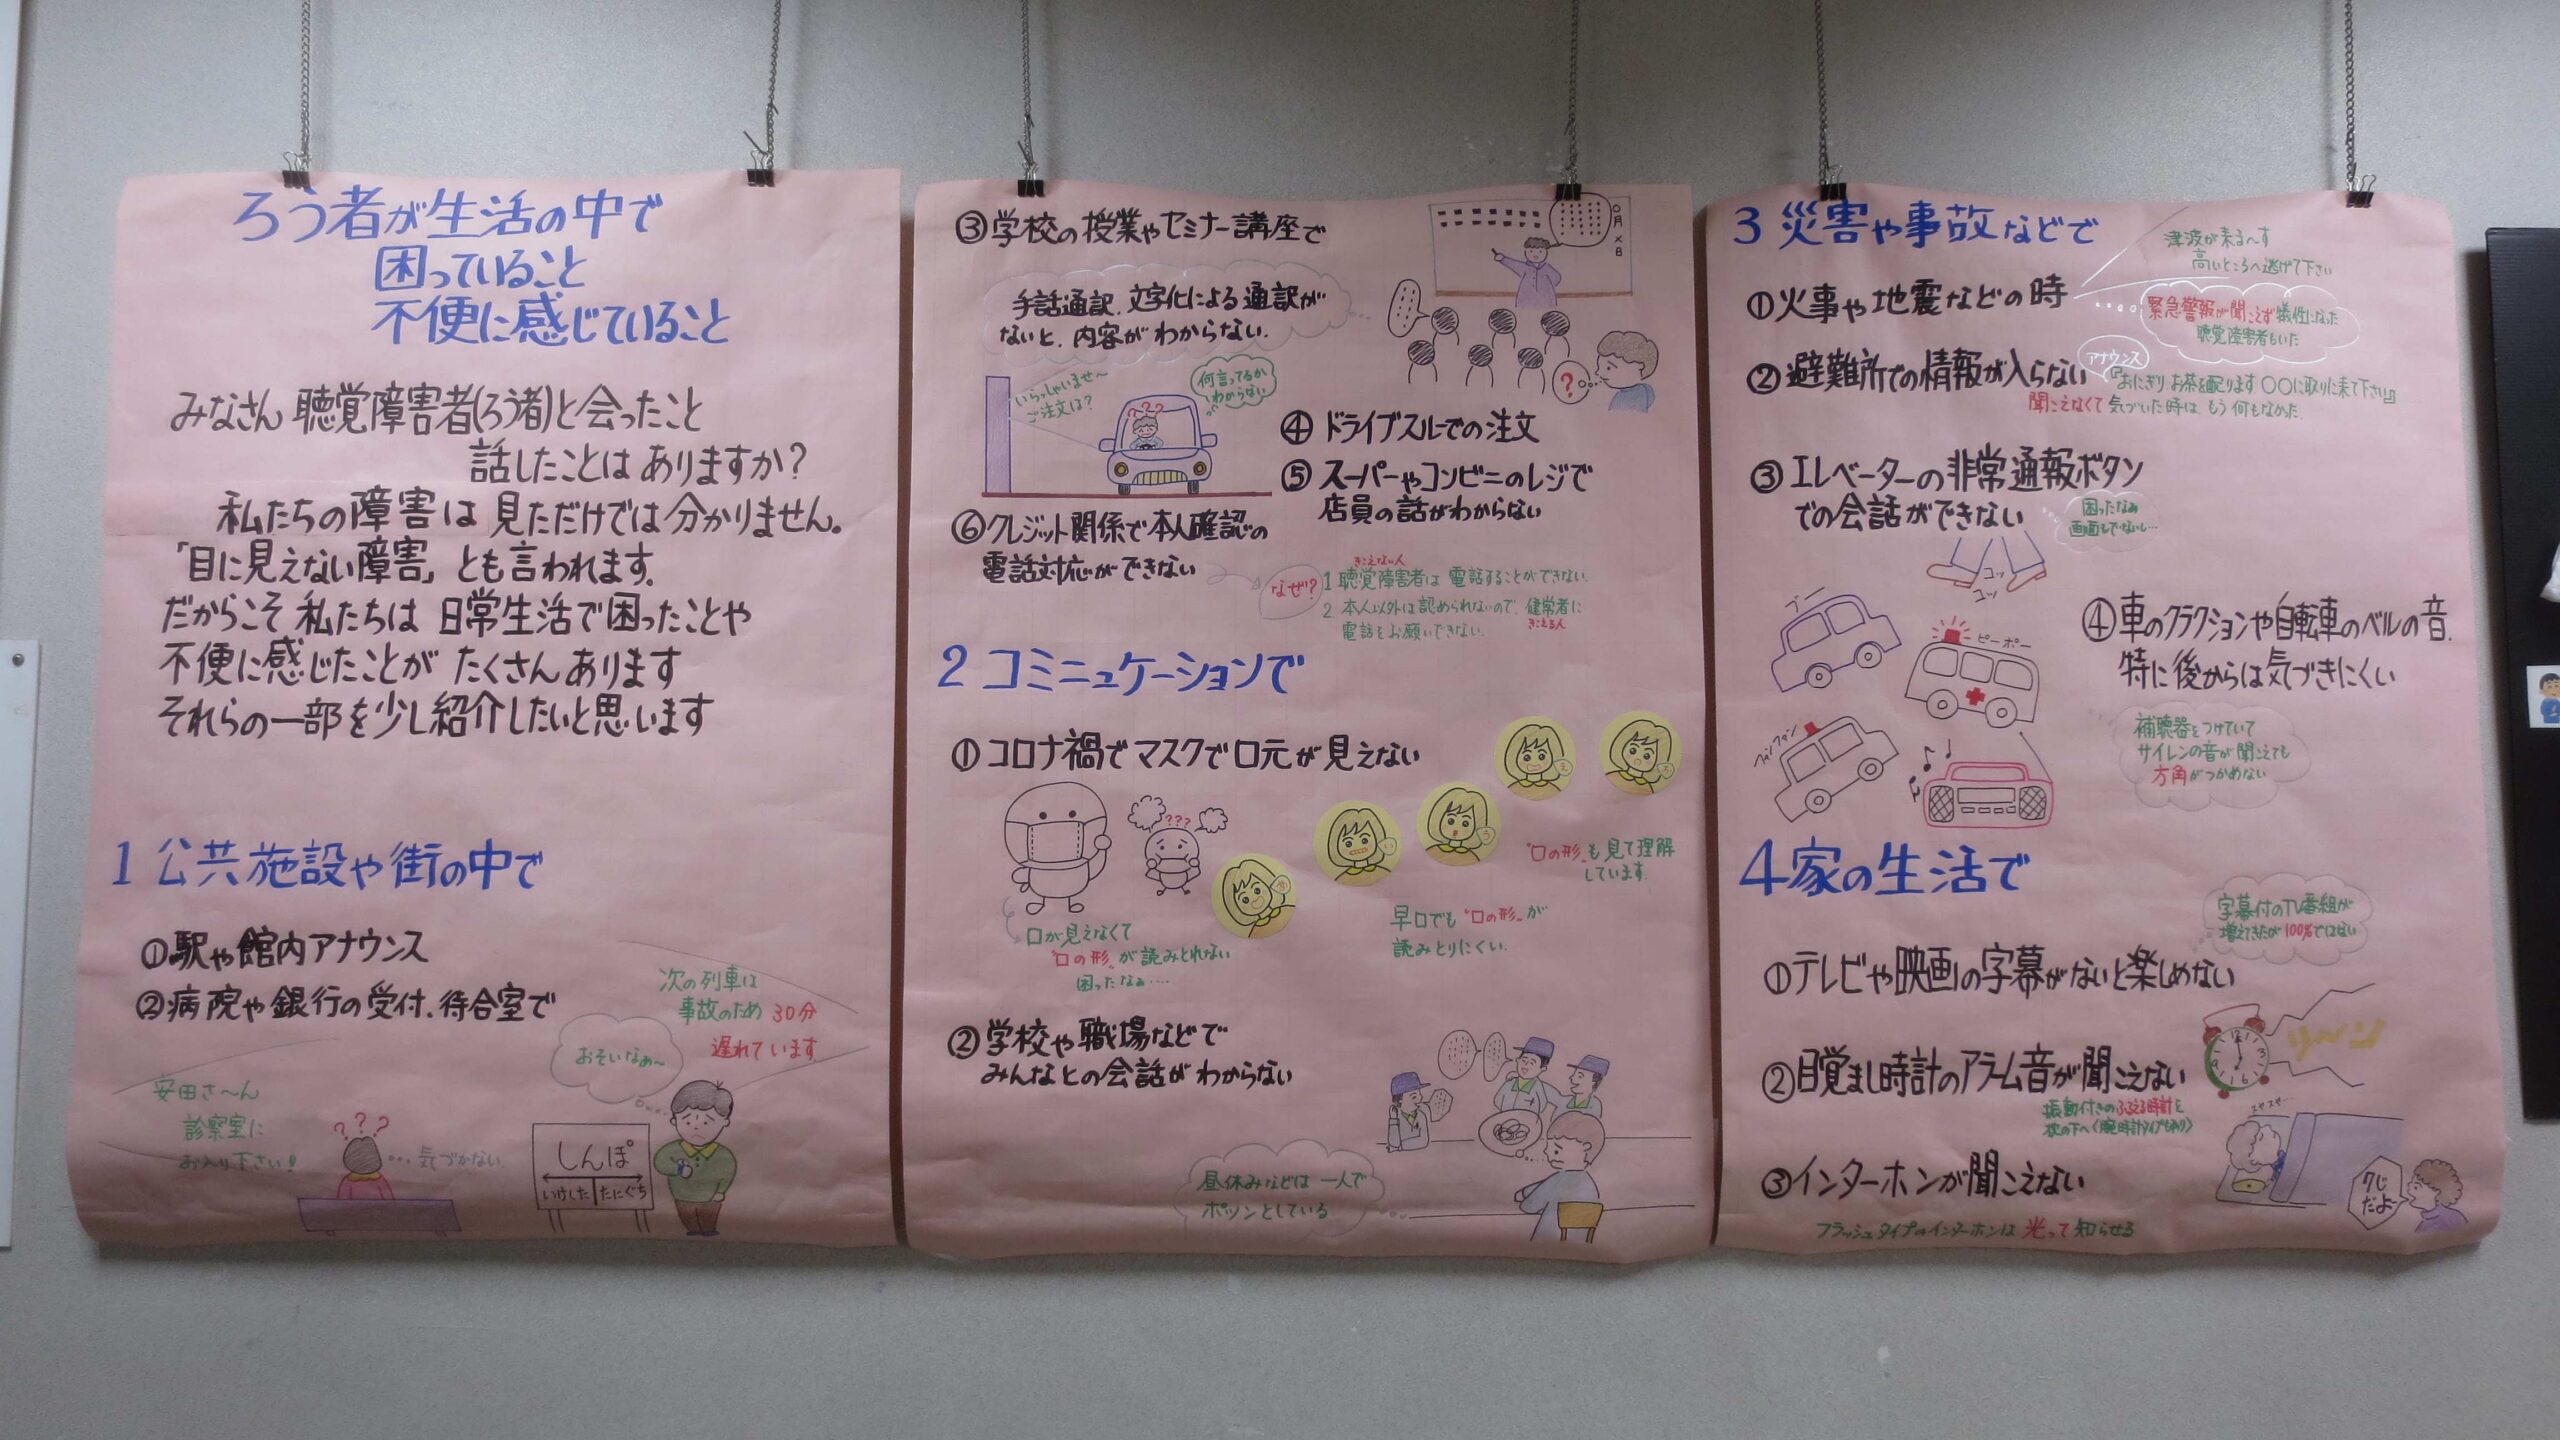 ろう者が生活の中で
困っていること
不便に感じていること
みなさん 聴覚障害者(ろう者)と会ったこと
話したことは ありますか?
私たちの障害は 見ただけでは 分かりません。
「目に見えない障害」とも言われます。
だからこそ 私たちは 日常生活で困ったことや
不便に感じたことが たくさんあります
それらの一部を少し紹介したいと思います
1 公共施設や街の中で
①駅や館内アナウンス
②病院や銀行の受付、待合室で
次の列車は
事故のため 30分
遅れています
おそいなぁ〜
安田さ〜ん
診察室に
お入り下さい!
???
…気づかない
しんぽ
いけした たにぐち
③学校の授業やセミナー講座で
〇月×日
手話通訳、文字化による通訳が
ないと、内容がわからない。
?
いらっしゃいませ〜
ご注文は?
何言ってるか
わからない
???
④ドライブスルーでの注文
⑤スーパーやコンビニのレジで
店員の話がわからない
⑥クレジット関係で本人確認の
電話対応ができない
なぜ?
きこえない人
1 聴覚障害者は 電話することができない。
2. 本人以外は認められないので、健常者に
きこえる人
電話をお願いできない。
2 コミニュケーションで
①コロナ禍でマスクで口元が見えない
???
え
い
う
"口の形"も見て理解
しています。
口が見えなくて
"口の形"が読みとれない
困ったなぁ‥‥
早口でも"口の形"が
読みとりにくい。
②学校や職場などで
みんなとの会話がわからない
昼休みなどは 一人で
ポツンとしている
3 災害や事故などで
津波が来る〜す
高いところへ逃げて下さい
①火事や地震などの時
緊急警報が聞こえず犠牲になった
聴覚障害者もいた
②避難所での情報が入らない
アナウンス
『おにぎり お茶を配ります 〇〇に取りに来て下さい』
聞こえなくて 気づいた時は、もう何もなかった。
③エレベーターの非常通報ボタン
での会話ができない
困ったなぁ
画面もでないし…
コッ
コッ
ブー
ピーポー
④車のクラクションや自転車のベルの音、
特に後からは気づきにくい
補聴器をつけていて
サイレンの音が聞こえても
方角がつかめない
4 家の生活で
字幕付のTV番組が
増えてきたが100%ではない
①テレビや映画の字幕がないと楽しめない
②目覚まし時計のアラーム音が聞こえない
振動付きのふるえる時計を
枕の下へ(腕時計タイプもあり)
③インターホンが聞こえない
7じ
だよー
フラッシュタイプのインターホンは 光って 知らせる